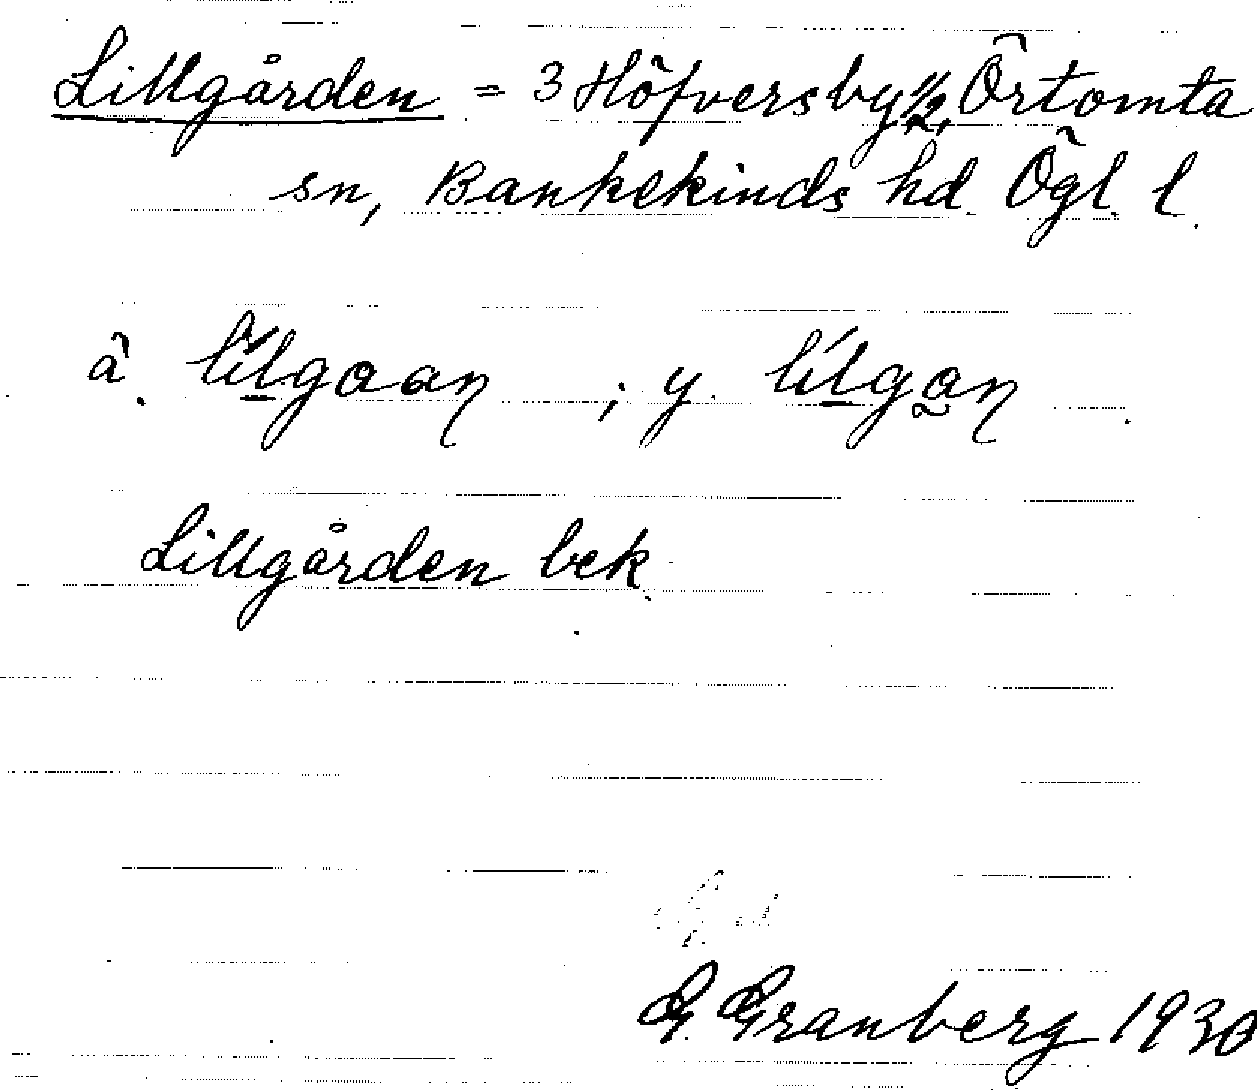 Lillgården = 3 Höfversby 1/2, Örtomta
sn, Bankekinds hd. Ögl. l.
ä. lílgaan ; y. lílgan.
Lillgården bek.
G. Granberg 1930